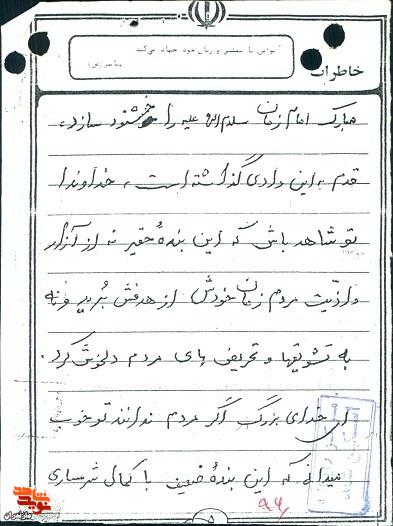 مؤمن با شمشیر و زبان خود جهاد می‌کند
پیامبر (ص)
خاطرات
مبارک امام زمان سلام الله علیه را خوشنود سازد،
قدم به این وادی گذاشته است، خداوندا
تو شاهد باش که این بندهٔ حقیر نه از آزار
و اذیت مردم زمان خودش از هدفش برید و نه
به تشویقها و تحریف های مردم دلخوش کرد.
ای خدای بزرگ اگر مردم ندانند تو خوب
میدانی که این بندهٔ ضعیف با کمال شرمساری
۹۶/
۵
نوید شاهد